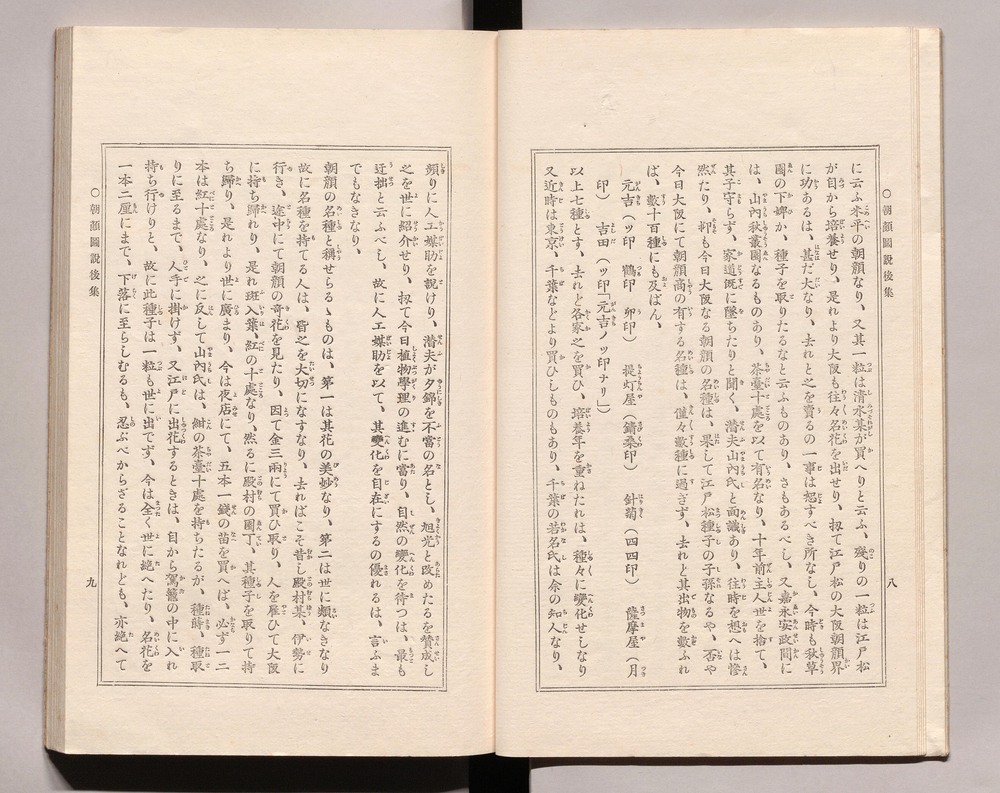 ○朝顔圖說後集
八
に云ふ米平の朝顔なり、又其一粒は清水某が買へりと云ふ、殘りの一粒は江戸松
が自から培養せり、是れより大阪も往々名花を出せり、扨て江戸松の大阪朝顔界
に功あるは、甚だ大なり、去れと之を賣るの一事は恕すべき所なし、今時も秋草
園の下婢か、種子を取りたるなと云ふものあり、さもあるべし、又嘉永安政間に
は、山內秋叢園なるものあり、茶臺十處を以て有名なり、十年前主人世を捨て、
其子守らず、家道旣に墜ちたりと聞く、潜夫山內氏と面識あり、往時を想へは慘
然たり、抑も今日大阪なる朝顔の名種は、果して江戸松種子の子孫なるや、否や
今日大阪にて朝顔商の有する名種は、僅々數種に過ぎず、去れと其出物を數ふれ
ば、數十百種にも及ばん、
元吉(ッ印 鶴印 卯印) 提灯屋(鏽桑印) 針菊(四四印) 薩摩屋(月
印) 吉田(ッ印「元吉ノッ印ナリ」)
以上七種とす、去れと各家之を買ひ、培養年を重ねたれは、種々に變化せしなり
又近時は東京、千葉などより買ひしものもあり、千葉の若名氏は余の知人なり、
頻りに人工媒助を說けり、潜夫が夕錦を不當の名とし、旭光と改めたるを賛成し
之を世に紹介せり、扨て今日植物學理の進むに當り、自然の變化を待つは、最も
迂拙と云ふべし、故に人工媒助を以て、其變化を自在にするの優れるは、言ふま
でもなきなり、
朝顔の名種と稱せらるゝものは、第一は其花の美妙なり、第二は世に類なきなり
故に名種を持てる人は、皆之を大切になすなり、去ればこそ昔し殿村某、伊勢に
行き、途中にて朝顔の奇花を見たり、因て金三兩にて買ひ取り、人を雇ひて大阪
に持ち歸れり、是れ斑入葉、紅の十處なり、然るに殿村の園丁、其種子を取りて持
ち歸り、是れより世に廣まり、今は夜店にて、五本一錢の苗を買へば、必ず一二
本は紅十處なり、之に反して山內氏は、紺の茶臺十處を持ちたるが、種蒔、種取
りに至るまで、人手に掛けず、又江戸に出花するときは、自から駕籠の中に入れ
持ち行けりと、故に此種子は一粒も世に出でず、今は全く世に絕へたり、名花を
一本二厘にまで、下落に至らしむるも、忍ぶべからざることなれども、亦絕へて
○朝顔圖說後集
九